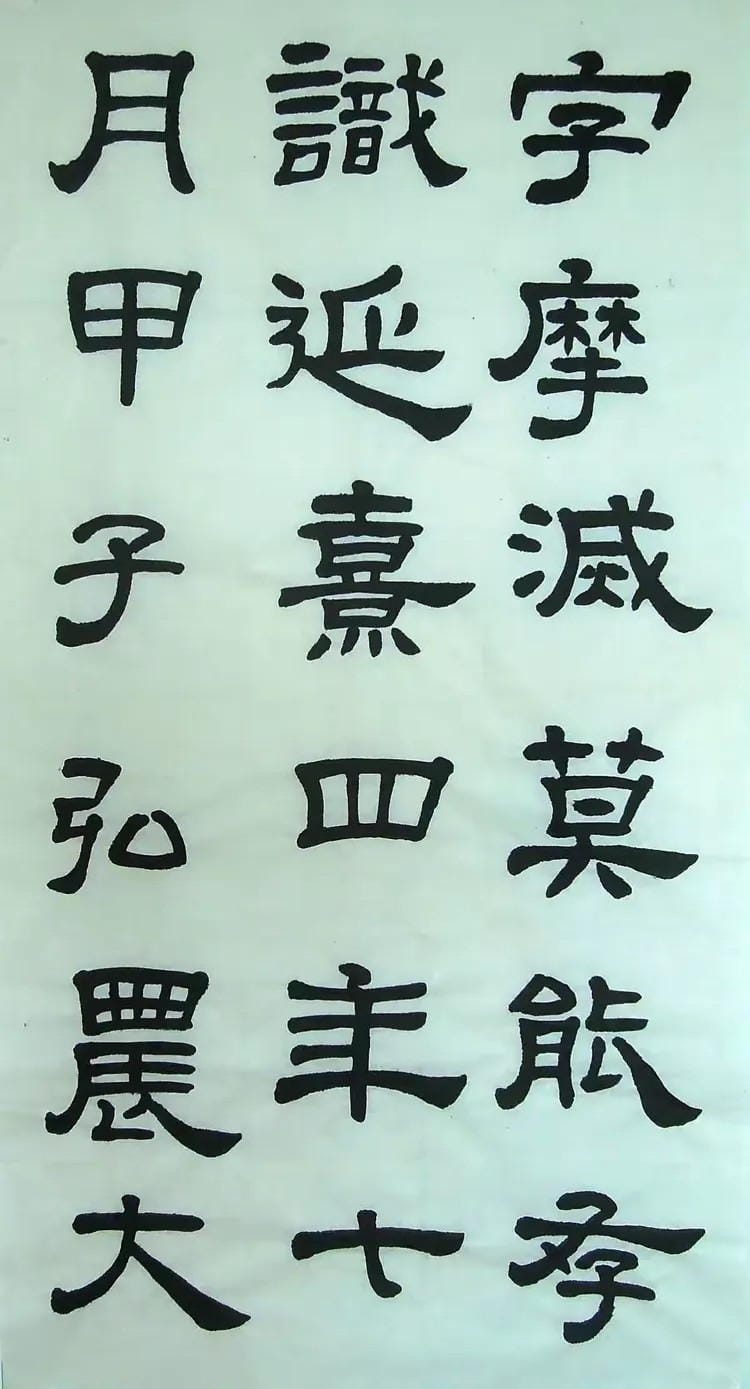 字摩滅莫能存
識延熹四年七
月甲子弘農大